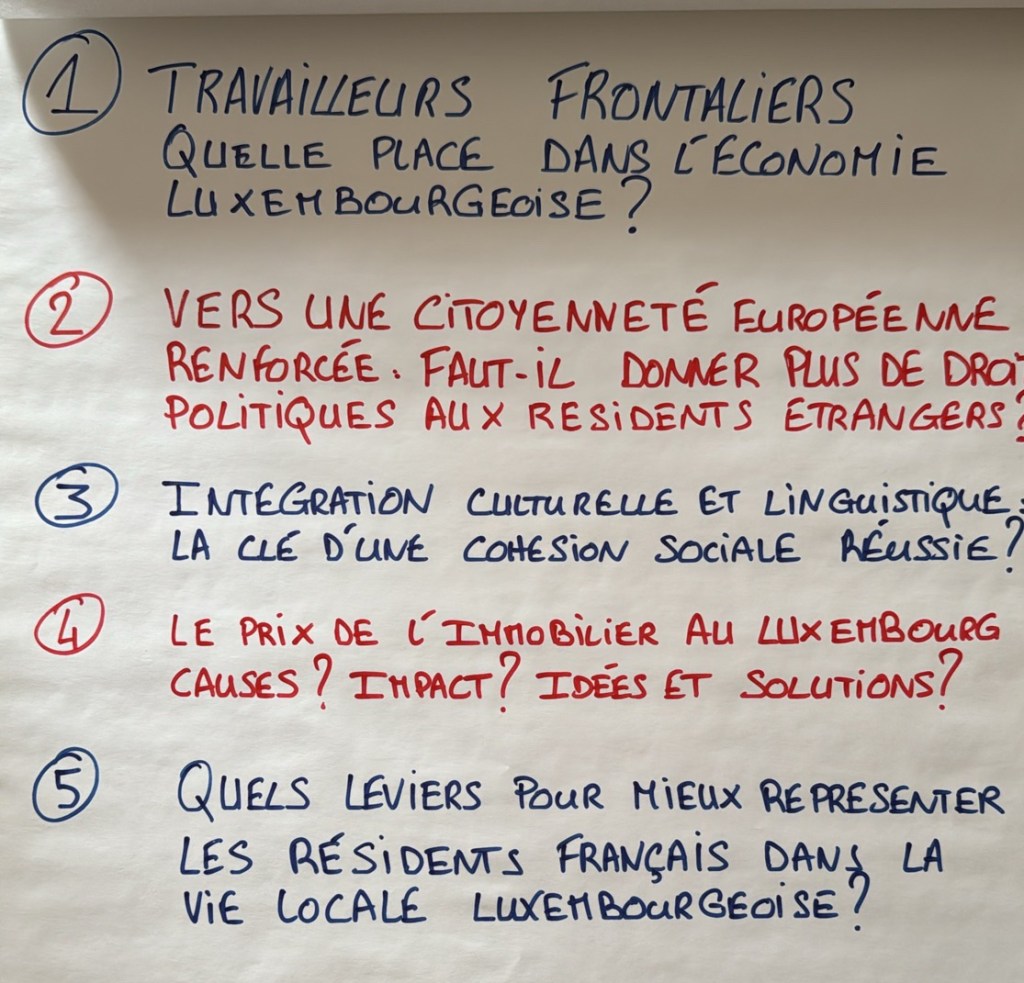 1 TRAVAILLEURS FRONTALIERS
QUELLE PLACE DANS L'ECONOMIE
LUXEMBOURGEOISE ?
2 VERS UNE CITOYENNETÉ EUROPÉENNE
RENFORCÉE. FAUT-IL DONNER PLUS DE DROIT
POLITIQUES AUX RESIDENTS ETRANGERS?
3 INTEGRATION CULTURELLE ET LINGUISTIQUE:
LA CLÉ D'UNE COHESION SOCIALE RÉUSSIE?
4 LE PRIX DE L'IMMOBILIER AU LUXEMBOURG
CAUSES? IMPACT? IDÉES ET SOLUTIONS?
5 QUELS LEVIERS POUR MIEUX REPRESENTER
LES RÉSIDENTS FRANÇAIS DANS LA
VIE LOCALE LUXEMBOURGEOISE?